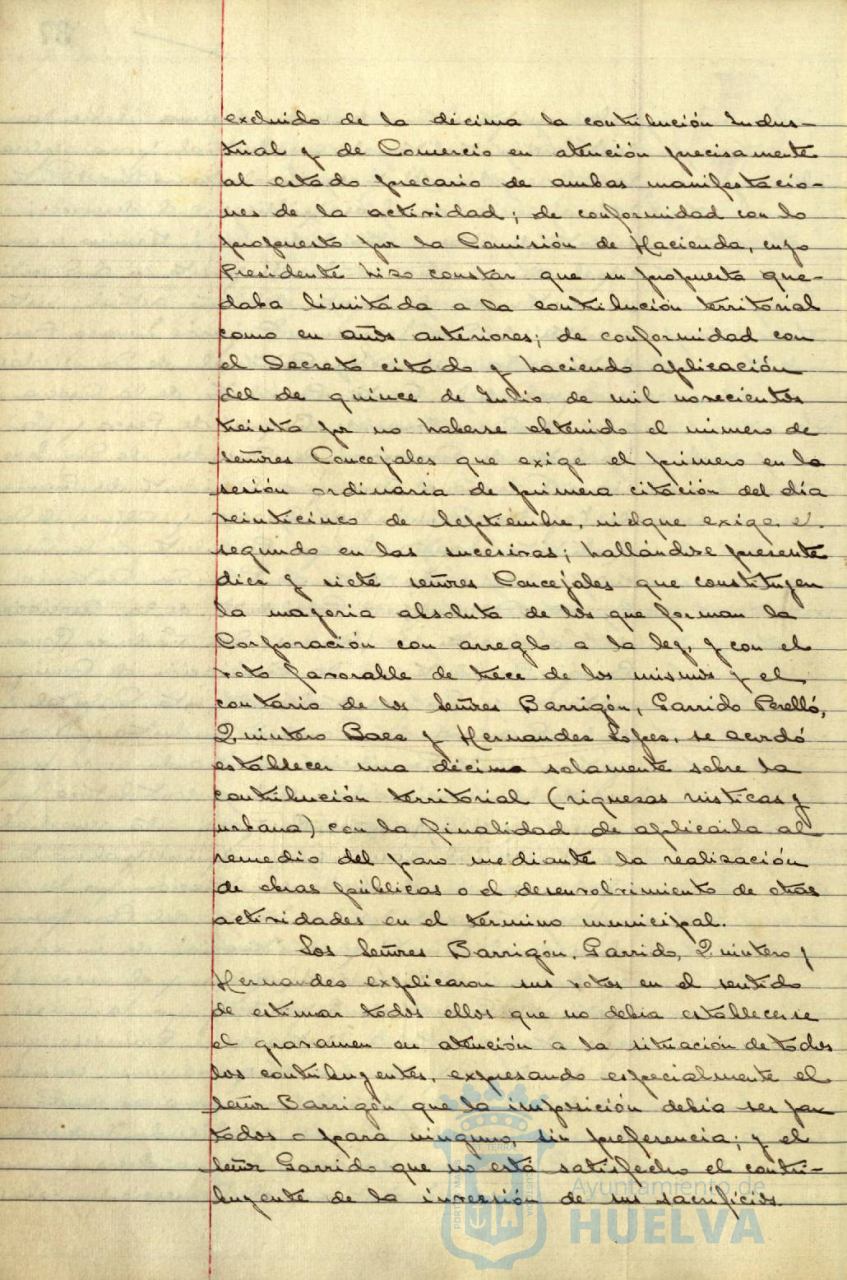 excluido de la décima la contribución Indus-
trial y de Comercio en atención precisamente
al estado precario de ambas manifestacio-
nes de la actividad; de conformidad con lo
propuesto por la Comisión de Hacienda, cuyo
Presidente hizo constar que su propuesta que-
daba limitada a la contribución territorial
como en años anteriores; de conformidad con
el Decreto citado y haciendo aplicación
del de quince de Julio de mil novecientos
treinta por no haberse obtenido el número de
señores Concejales que exige el primero en la
sesión ordinaria de primera citación del día
veinticinco de Septiembre, ni el que exige el
segundo en las sucesivas; hallándose presente
diez y siete señores Concejales que constituyen
la mayoria absoluta de los que forman la
Corporación con arreglo a la ley, y con el
voto favorable de trece de los mismos y el
contrario de los Señores Barrigón, Garrido Perelló,
Quintero Baez y Hernandez Lopez, se acordó
establecer una décima solamente sobre la
contribución territorial (riquezas rústicas y
urbana) con la finalidad de aplicarla al
remedio del paro mediante la realización
de obras públicas o el desenvolvimiento de otras
actividades en el término municipal.
Los Señores Barrigón, Garrido, Quintero y
Hernandez explicaron sus votos en el sentido
de estimar todos ellos que no debia establecerse
el gravamen en atención a la situación de todos
los contribuyentes, expresando especialmente el
Señor Barrigón que la imposición debia ser para
todos o para ninguno, sin preferencia; y el
Señor Garrido que no está satisfecho el contri-
buyente de la inversión de sus sacrificios.
Ayuntamiento de
HUELVA